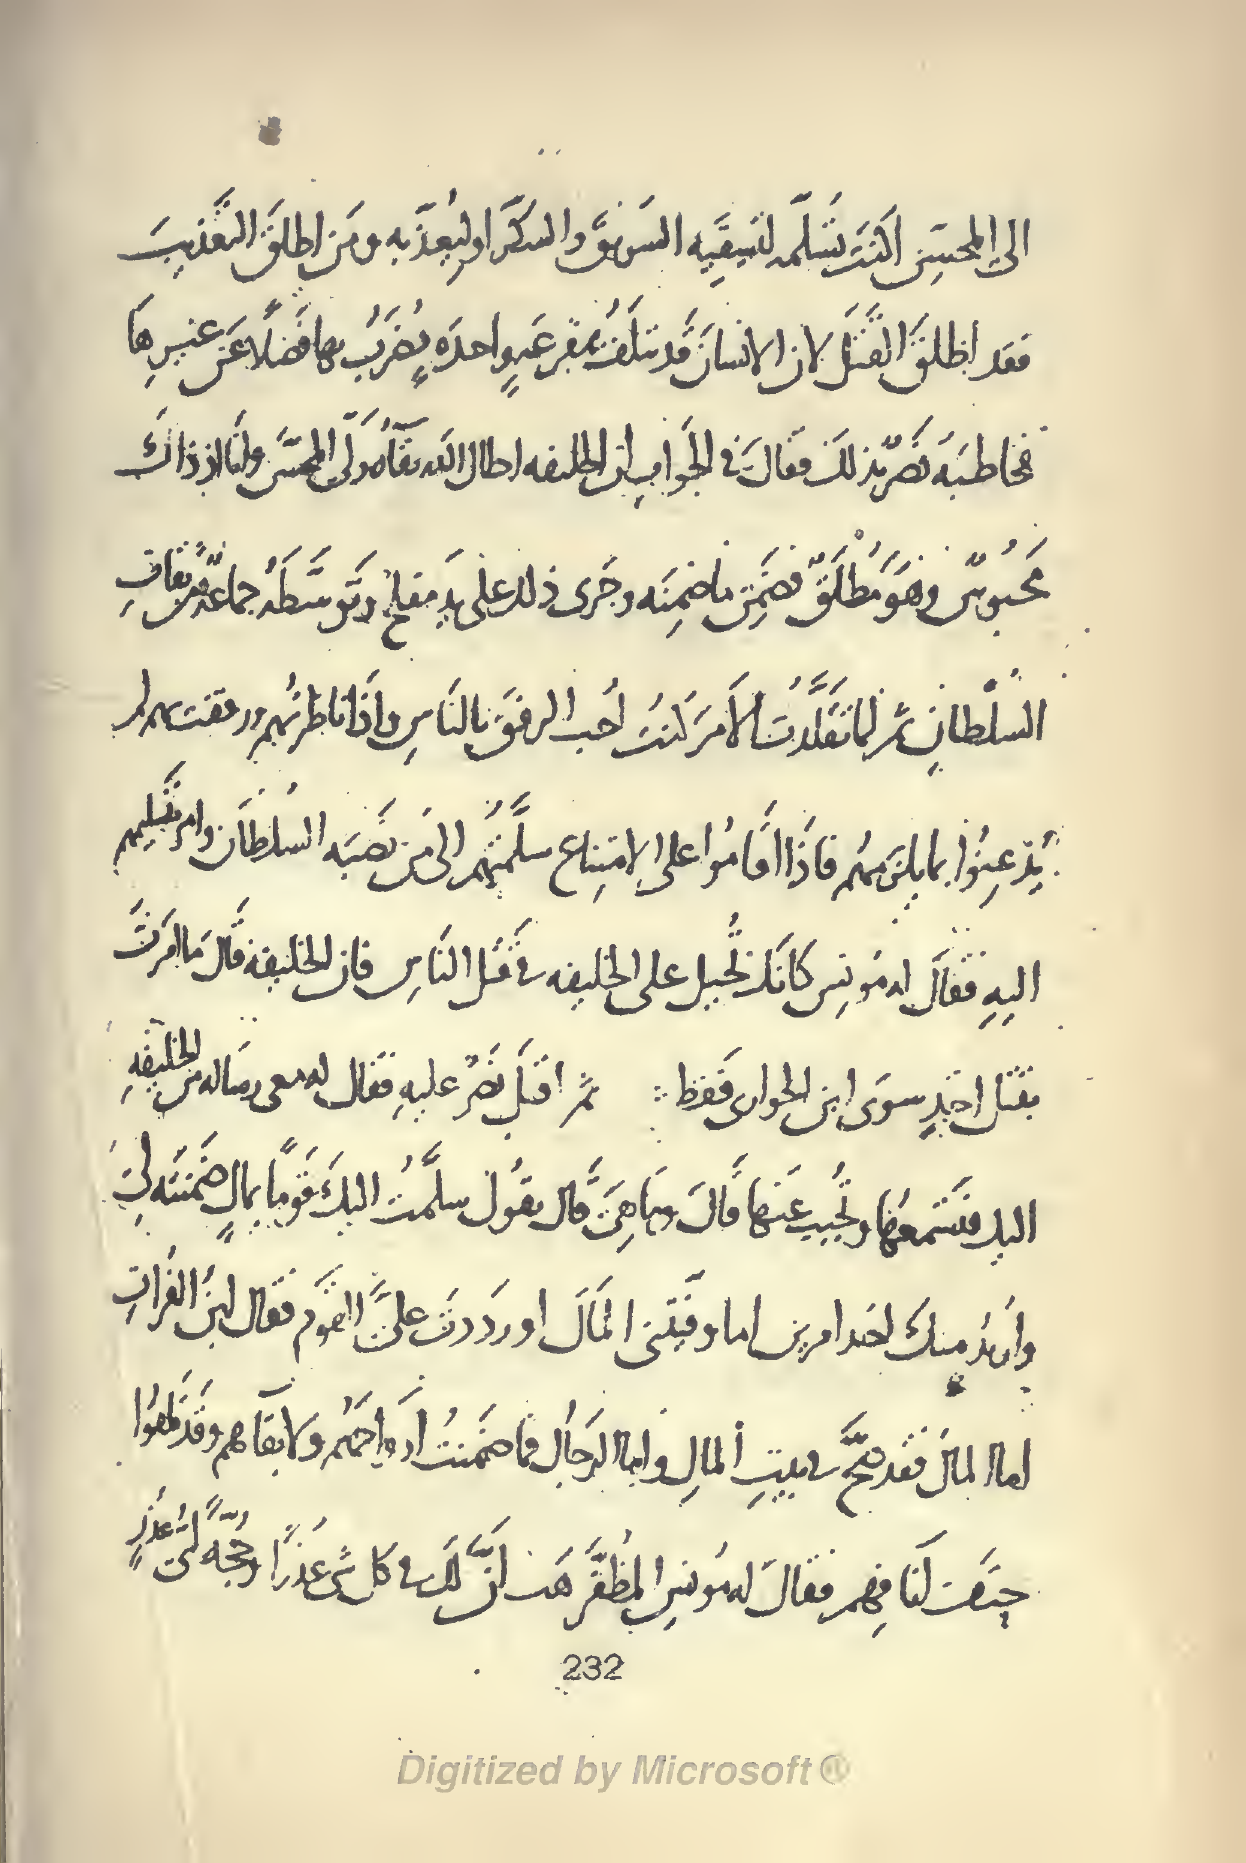 الى المحسن اكنت تسلمه لتسقيه السويق والسكر او ليعذبه ومن اطلق التعذيب
فقد اطلق القتل لان الانسان قد يتلف بمقرعه واحده يضرب بها فضلا عن غيرها
فخاطبه نصر بذلك فقال في الجواب ان الخليفه اطال الله بقاه ولى المحسن وانا اذ ذاك
محبوس وهو مطلق فضمن ما ضمنه وجرى ذلك على يد مفلح وتوسطه جماعة من ثقات
السلطان ثم لما تقلدت الامر كنت احب الرفق بالناس واذا ناظرتهم ورفقت بهم لم
يذعنوا بما يلزمهم فاذا اقاموا على الامتناع سلمتهم الى من نصبه السلطان وامر بتسليمهم
اليه فقال له مونس كانك تحيل على الخليفه في قتل الناس فان الخليفه قال ما امرت
بقتل احد سوى ابن الحوارى فقط ثم اقبل نصر عليه فقال له معى رساله من الخليفه
اليك فتسمعها وتجيب عنها قال وما هى قال يقول سلمت اليك قوما بمال ضمنته لى
واريد منك احد امرين اما وفيتنى المال او رددت على القوم فقال ابن الفرات
اما المال فقد صح في بيت المال واما الرجال فما ضمنت ارواحهم ولا بقاهم وقد
حتف انا فيهم فقال له مونس المظفر هب ان لك في كل شى عذرا وحجة اى عذر
232
Digitized by Microsoft®